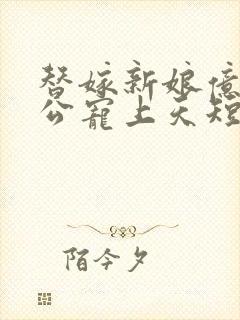 替嫁新娘亿
公宠上天短
陌今夕